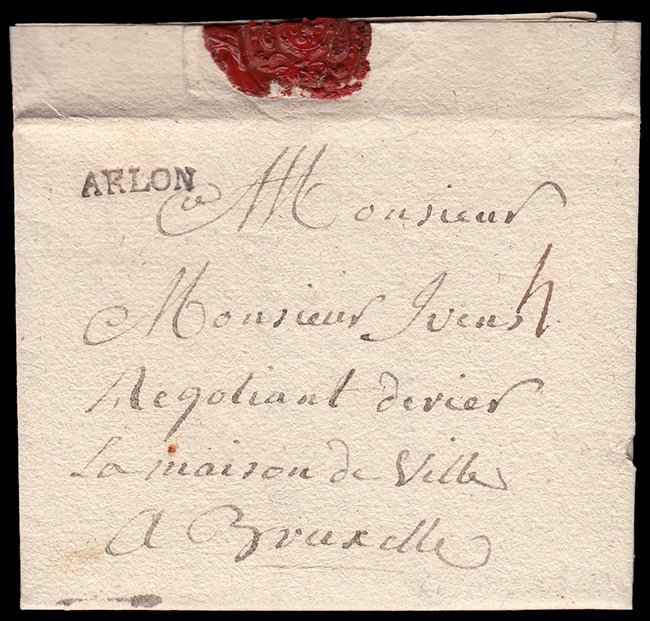 ARLON
a Monsieur
Monsieur Ivens 4
Negotiant derier
La maison de Ville
A Bruxelle